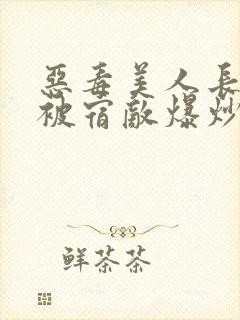 惡毒美人長
被宿敵爆炒
鮮茶茶